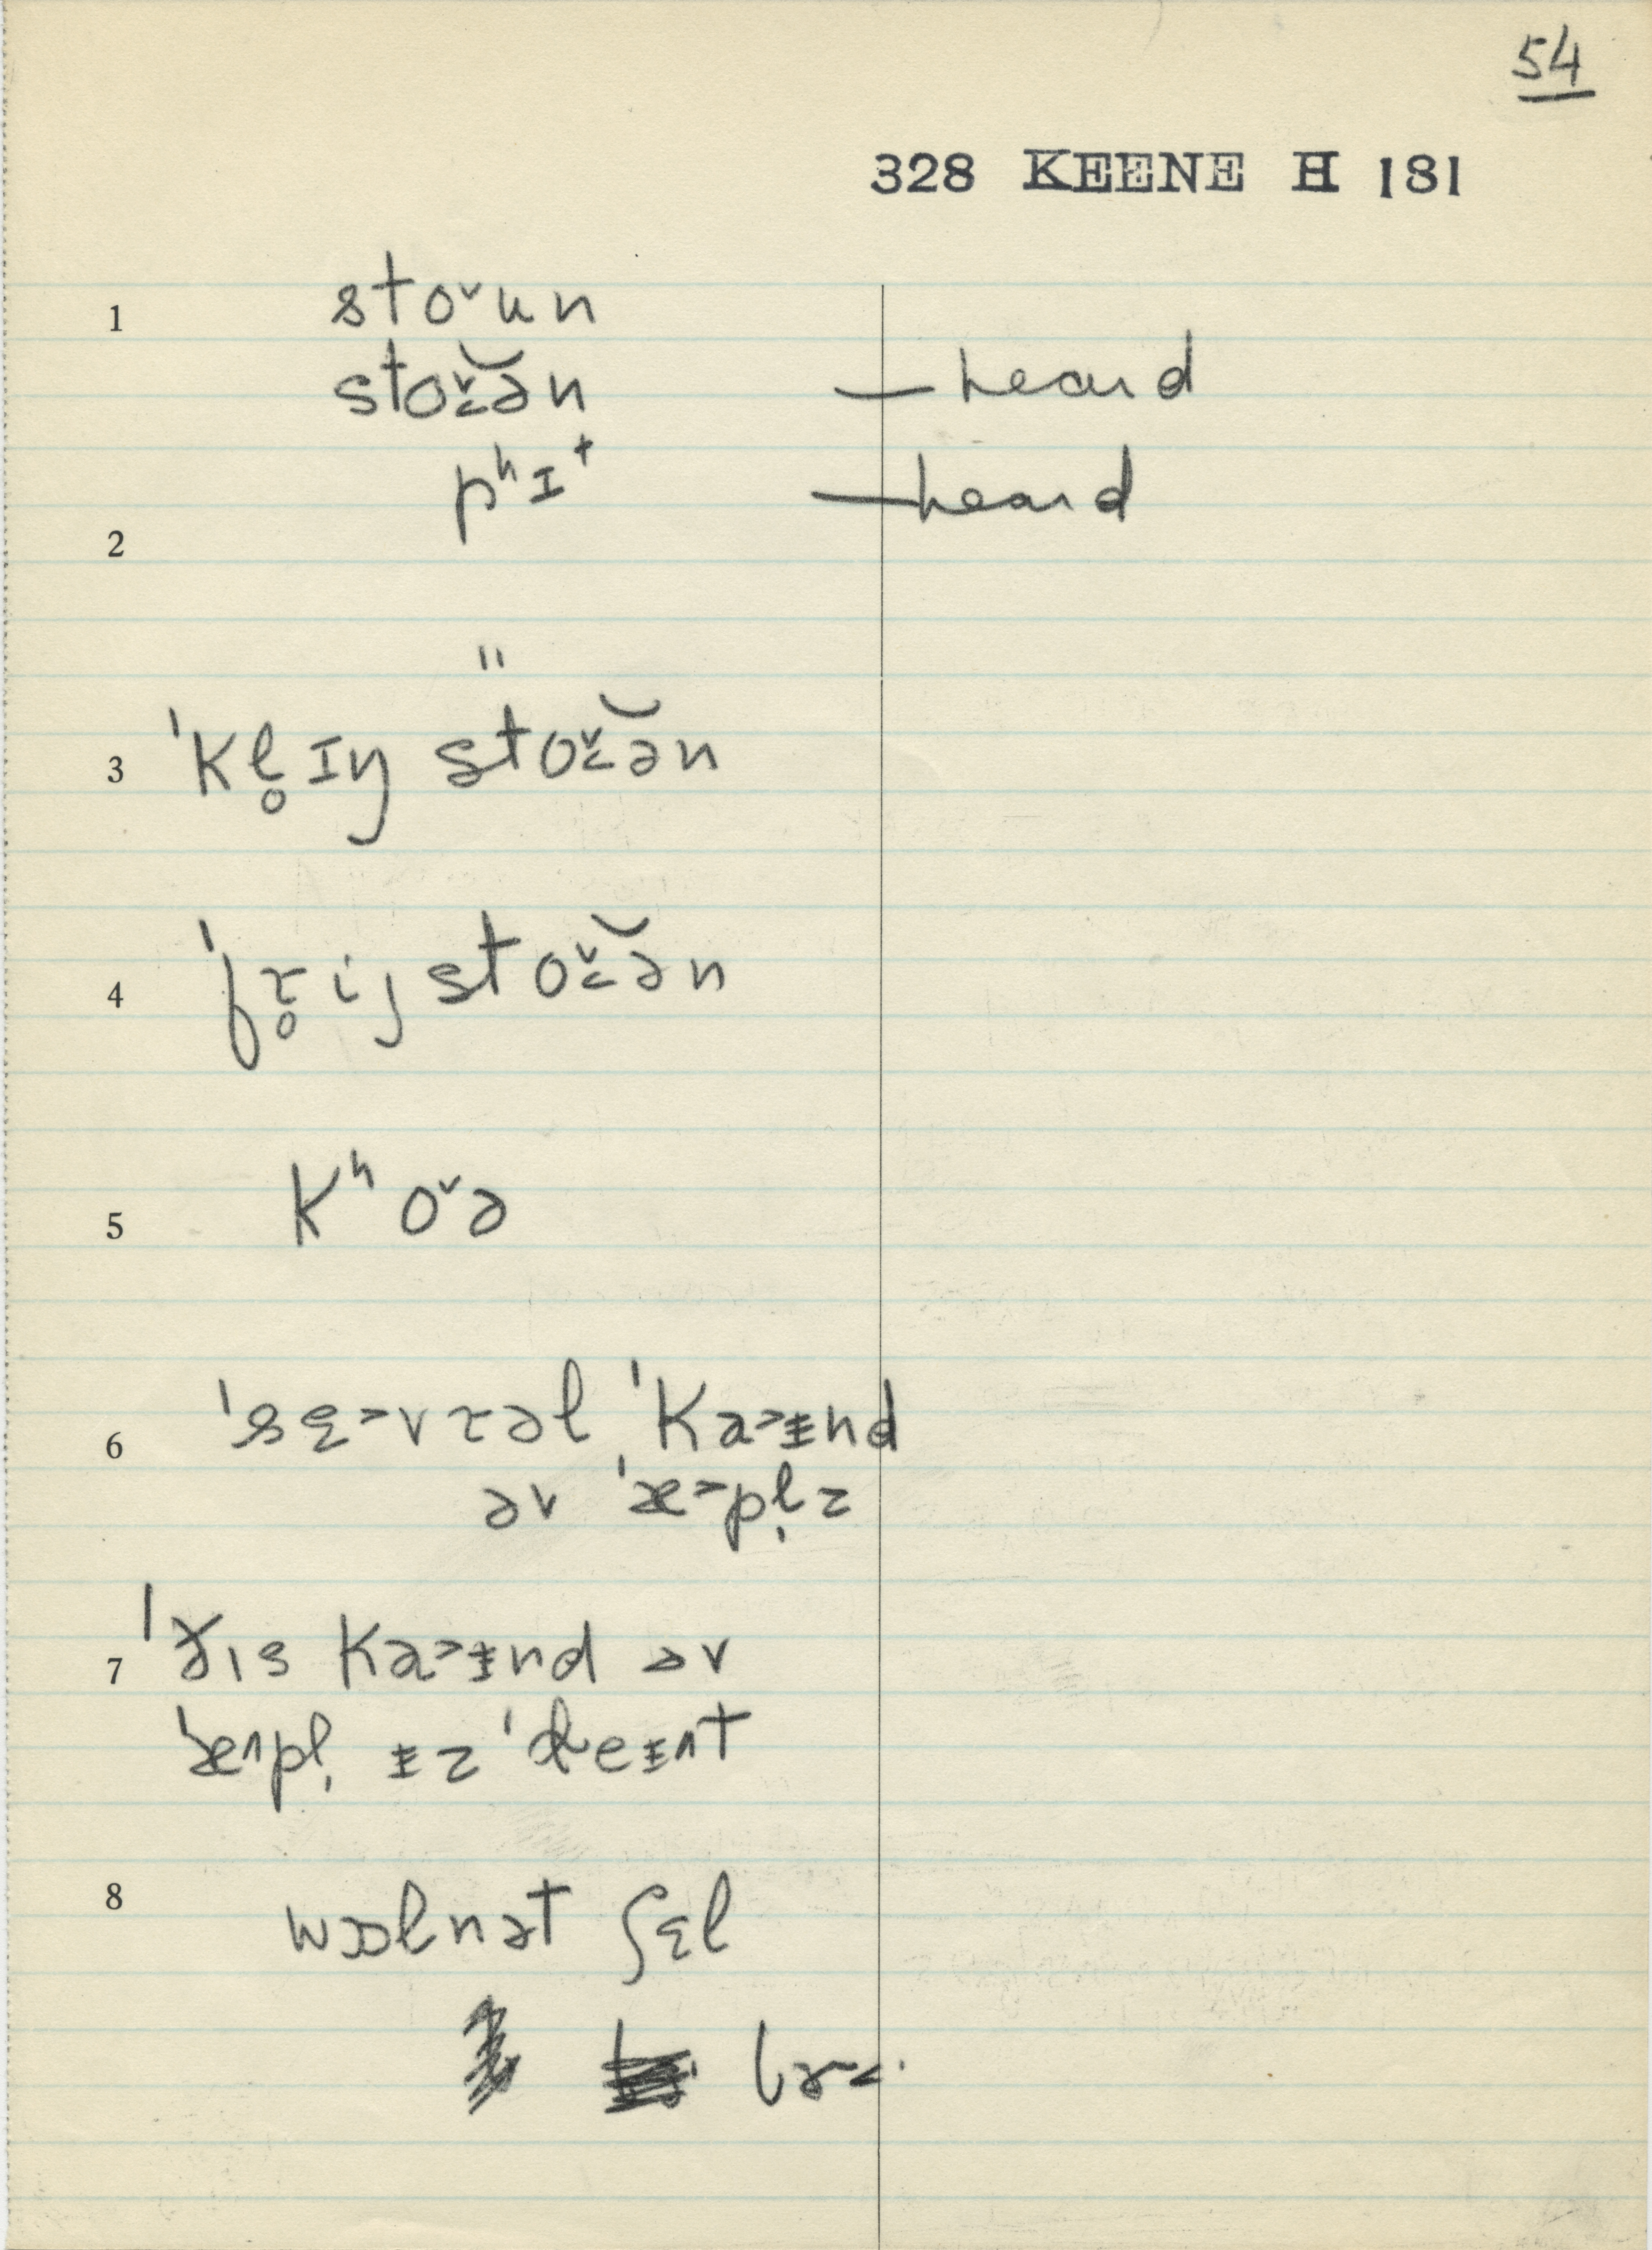 54
328 KEENE H 181
1 stoˇun
stoˇ˂ə̆n — heard
pʰɪᵗ — heard
2
"
3 ˈkl̥ɪŋ stoˇ˂ə̆n
4 ˈfɾ̥ij stoˇ˂ə̆n
5 kʰoˇə
6 ˈsɛ˃vɾəl ˈka˃ɨnd
əv ˈæ˃pl̩z
7 ˈðɪs ka˃ɨnd əv
ˈæ˄pl̩ ɨz ˈdeɨnt
8 wɒlnət ʃɛl